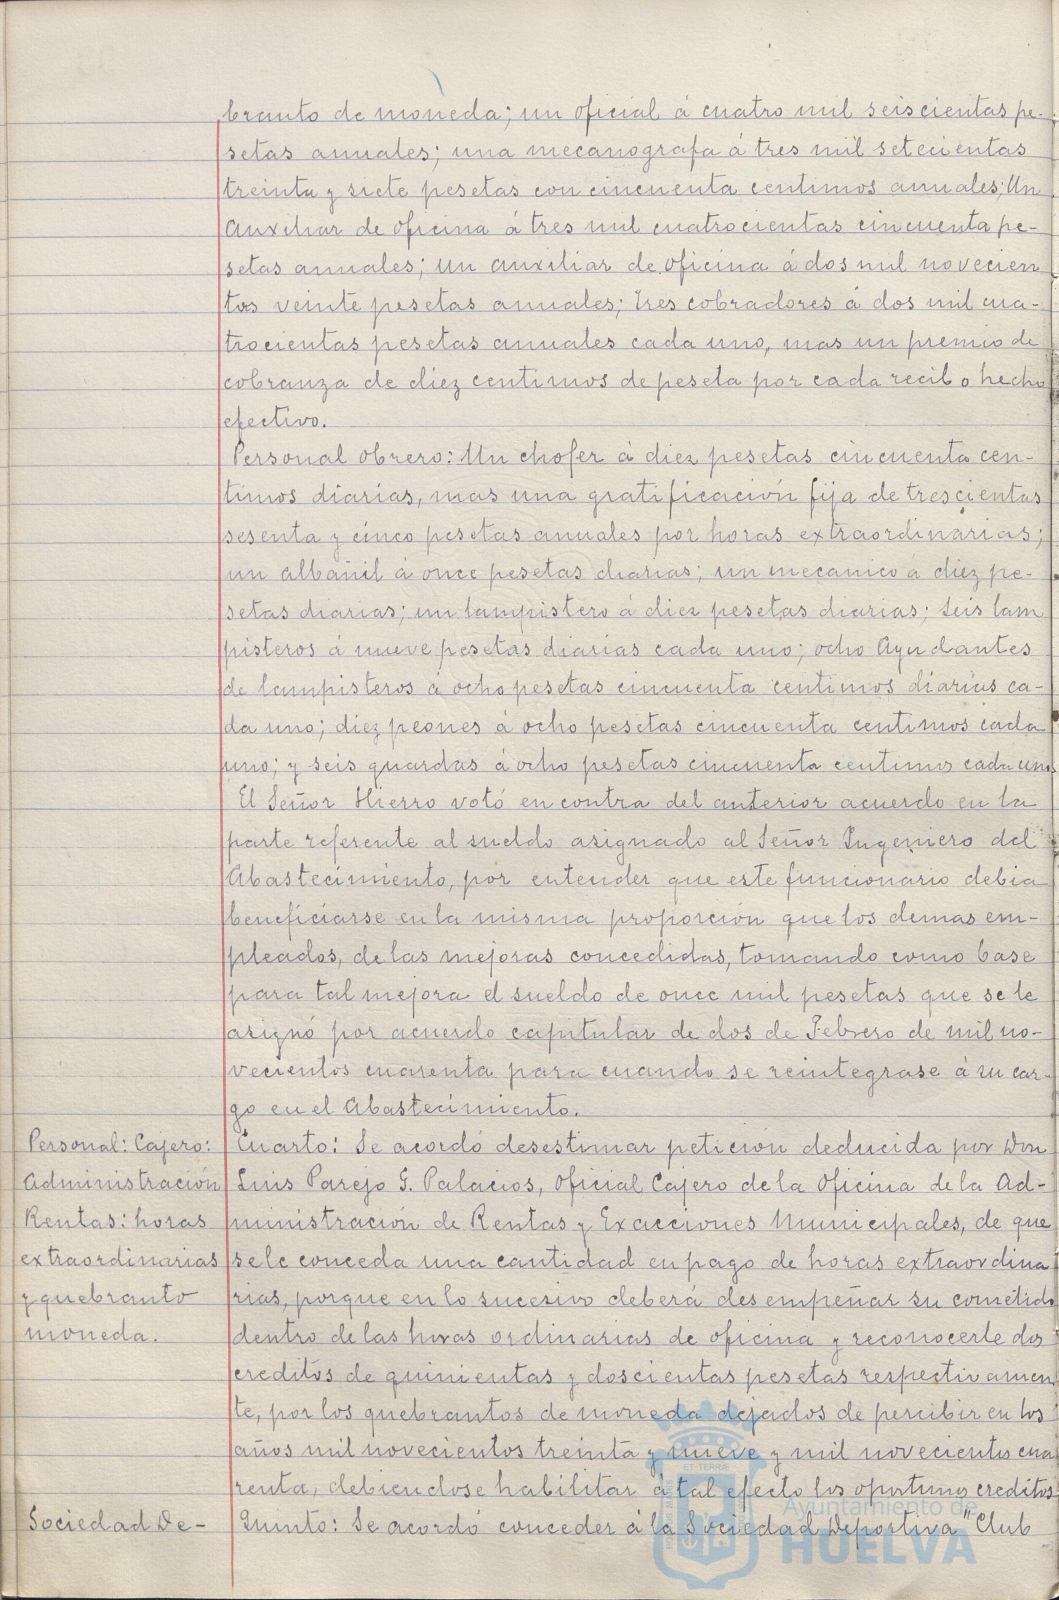 branto de moneda; un oficial á cuatro mil seiscientas pe-
setas anuales; una mecanografa á tres mil setecientas
treinta y siete pesetas con cincuenta centimos anuales; Un
Auxiliar de oficina á tres mil cuatrocientas cincuenta pe-
setas anuales; un auxiliar de oficina á dos mil novecien
tas veinte pesetas anuales; tres cobradores á dos mil cua-
trocientas pesetas anuales cada uno, mas un premio de
cobranza de diez centimos de peseta por cada recibo hecho
efectivo.
Personal Obrero: Un chofer á diez pesetas cincuenta cen-
timos diarias, mas una gratificación fija de trescientas
sesenta y cinco pesetas anuales por horas extraordinarias;
un albañil á once pesetas diarias; un mecanico á diez pe-
setas diarias; un lampistero á diez pesetas diarias; seis lam
pisteros á nueve pesetas diarias cada uno; ocho Ayudantes
de lampisteros á ocho pesetas cincuenta centimos diarias ca-
da uno; diez peones á ocho pesetas cincuenta centimos cada
uno; y seis guardas á ocho pesetas cincuenta centimos cada uno
El Señor Hierro votó en contra del anterior acuerdo en la
parte referente al sueldo asignado al Señor Ingeniero del
Abastecimiento, por entender que este funcionario debia
beneficiarse en la misma proporción que los demas em-
pleados, de las mejoras concedidas, tomando como base
para tal mejora el sueldo de once mil pesetas que se le
asignó por acuerdo capitular de dos de Febrero de mil no-
vecientos cuarenta para cuando se reintegrase á su car-
go en el Abastecimiento.
Personal: Cajero:
Administración
Rentas: horas
extraordinarias
y quebranto
moneda.
Cuarto: Se acordó desestimar petición deducida por Don
Luis Parejo G. Palacios, Oficial Cajero de la Oficina de la Ad-
ministración de Rentas y Exacciones Municipales, de que
se le conceda una cantidad en pago de horas extraordina
rias, porque en lo sucesivo deberá desempeñar su cometido
dentro de las horas ordinarias de oficina y reconocerle dos
creditos de quinientas y doscientas pesetas respectivamen
te, por los quebrantos de moneda dejados de percibir en los
años mil novecientos treinta y nueve y mil novecientos cua
renta, debiendose habilitar á tal efecto los oportunos creditos
Sociedad De-
Quinto: Se acordó conceder á la Sociedad Deportiva "Club
Ayuntamiento de
HUELVA